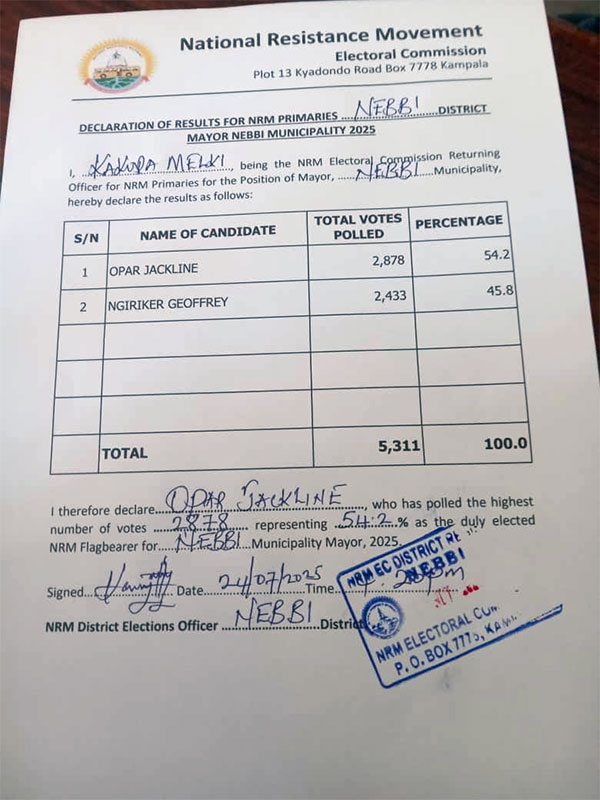 National Resistance Movement
Electoral Commission
Plot 13 Kyadondo Road Box 7778 Kampala
DECLARATION OF RESULTS FOR NRM PRIMARIES ....NEBBI....DISTRICT
MAYOR NEBBI MUNICIPALITY 2025
I, ...KAKURA MELKI..., being the NRM Electoral Commission Returning
Officer for NRM Primaries for the Position of Mayor, ...NEBBI...Municipality,
hereby declare the results as follows:
S/N NAME OF CANDIDATE TOTAL VOTES POLLED PERCENTAGE
1 OPAR JACKLINE 2,878 54.2
2 NGIRIKER GEOFFREY 2,433 45.8
TOTAL 5,311 100.0
I therefore declare...OPAR JACKLINE..., who has polled the highest
number of votes ...2878... representing ..54.2..% as the duly elected
NRM Flagbearer for...NEBBI...Municipality Mayor, 2025.
Signed... Date...24/07/2025...Time...
NRM District Elections Officer ...NEBBI...District
NRM EC DISTRICT
NEBBI
NRM ELECTORAL
P. O. BOX